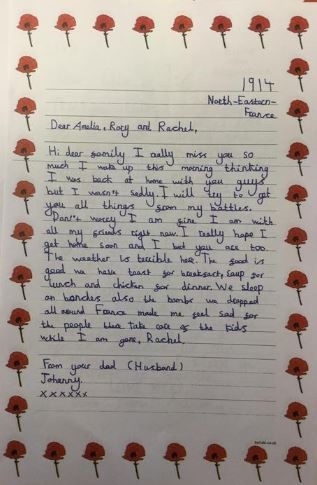 1914
North-Eastern-
France
Dear Amelia, Rory and Rachel,
Hi dear family I really miss you so
much I woke up this morning thinking
I was back at home with you guys
but I wasn't sadly. I will try to get
you all things from my battles.
Don't worry I am fine I am with
all my friends right now. I really hope I
get home soon and I bet you are too
The weather is terrible here. The food is
good we have toast for breakfast, soup for
lunch and chicken for dinner. We sleep
on benches also the bombs we dropped
all around France made me feel sad for
the people there. Take care of the kids
while I am gone, Rachel.
From your dad (Husband)
Johenny.
xxxxxx